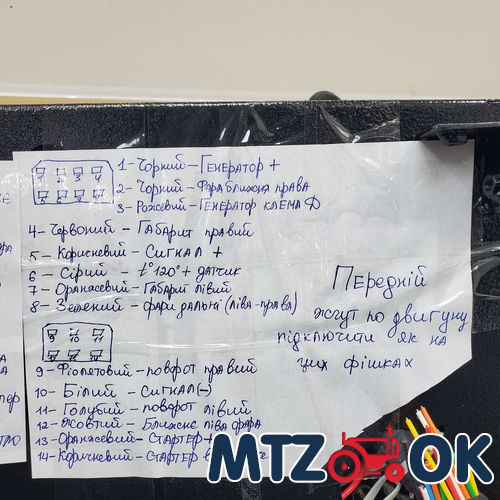 1 - Чорний - Генератор +
2 - Чорний - Фара ближня права
3 - Рожевий - Генератор клема Д
4 - Червоний - Габарит правий
5 - Корисневий - Сигнал +
6 - Сірий - t°120°+ датчик
7 - Оранжевий - Габарит лівий
8 - Зелений - фари дальні (ліва-права)
9 10 11
9 - Фіолетовий - поворот правий
10 - Білий - Сигнал (-)
11 - Голубий - поворот лівий
12 - Жовтий - Ближнє ліва фара
13 - Оранжевий - Стартер +
14 - Коричневий - Стартер
Передній
жгут по двигуну
підключити як на
цих фішках
MTZ OK